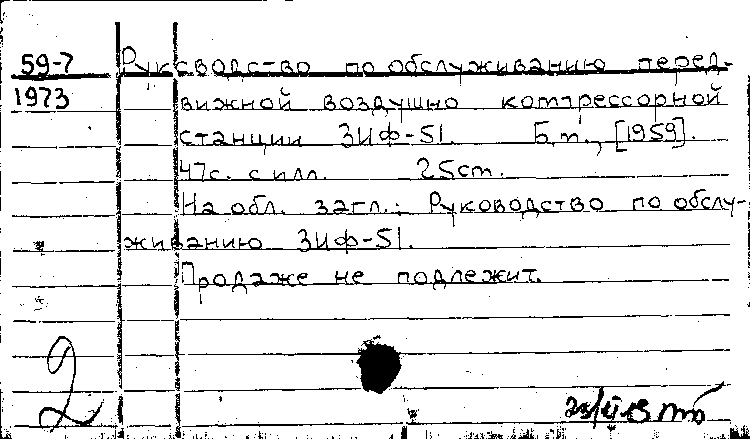 59-7 Руксводство по обслуживанию перед-
1973 вижной воздушно компрессорной
станции ЗИФ-51. Б.m., [1959].
47с. с илл. 25cm.
На обл. загл.: Руководство по обслу-
живанию ЗИФ-51.
Продаже не подлежит.
2